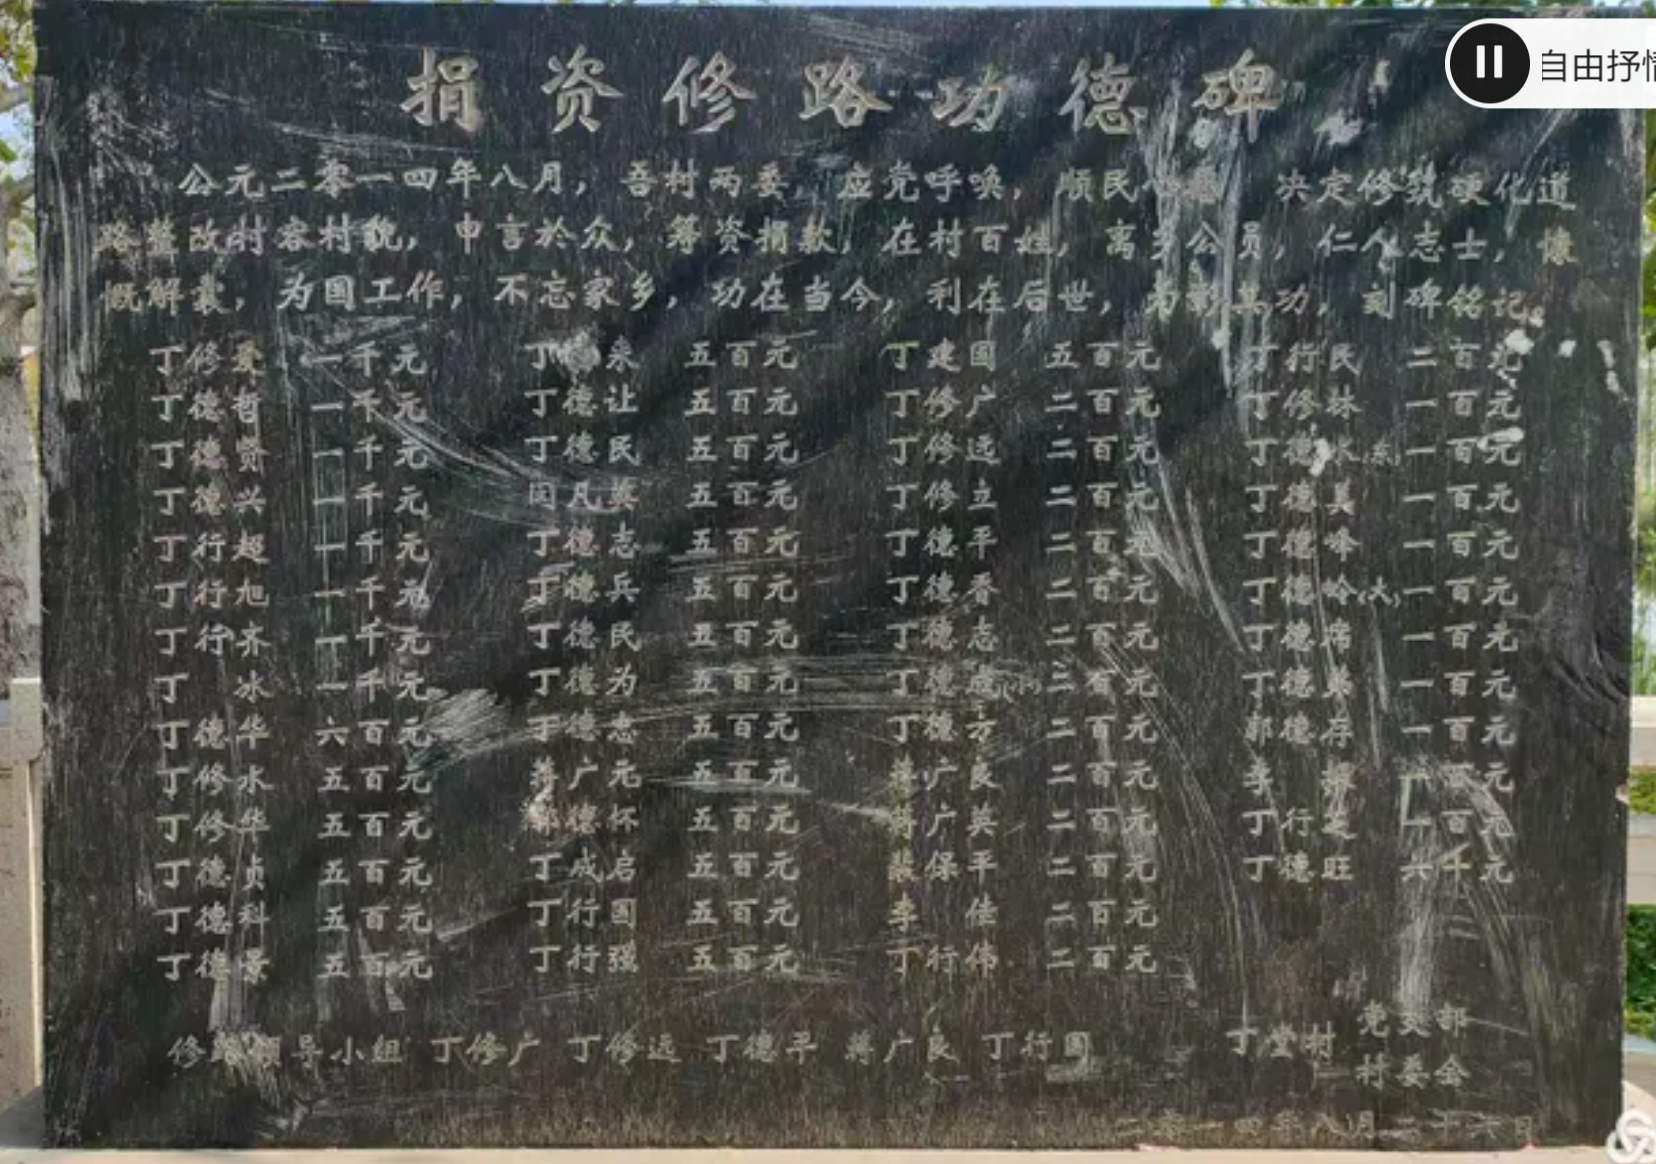 捐资修路功德碑
自由抒
公元二零一四年八月，吾村两委，应党呼唤，顺民 决定修筑硬化道
路整改村容村貌，申言於众，筹资捐款，在村百姓，离乡公员，仁人志士，慷
慨解囊，为国工作，不忘家乡，功在当今，利在后世，为彰其功，刻碑铭记。
丁修爱 一千元 丁 来 五百元 丁建国 五百元 丁行民 二百元
丁德哲 一千元 丁德让 五百元 丁修广 二百元 丁修林 一百元
丁德贤 一千元 丁德民 五百元 丁修远 二百元 丁德 一百元
丁德兴 一千元 闫凡英 五百元 丁修立 二百元 丁德美 一百元
丁行超 一千元 丁德志 五百元 丁德平 二百元 丁德峰 一百元
丁行旭 一千元 丁德兵 五百元 丁德香 二百元 丁德岭(大) 一百元
丁行齐 一千元 丁德民 五百元 丁德志 二百元 丁德席 一百元
丁冰 一千元 丁德为 五百元 丁德 (小) 二百元 丁德 一百元
丁德华 六百元 丁德志 五百元 丁德方 二百元 郭德存 一百元
丁修水 五百元 蒋广元 五百元 蒋广良 二百元 李 元
丁修华 五百元 德怀 五百元 蒋广英 二百元 丁行 一百元
丁德贞 五百元 丁成启 五百元 裴保平 二百元 丁德旺 六千元
丁德科 五百元 丁行国 五百元 李佳 二百元
丁德景 五百元 丁行强 五百元 丁行伟 二百元
修路领导小组 丁修广 丁修远 丁德平 蒋广良 丁行国
丁堂村 党支部
村委会
二零一四年八月二十六日